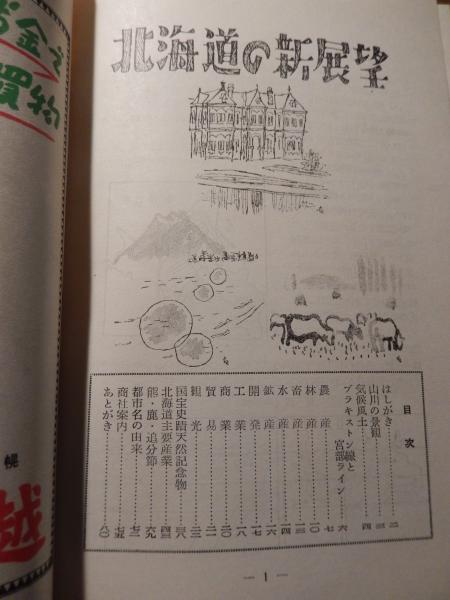 北海道の新展望
目次
はしがき 二
山川の景観 三
気候風土 四
ブラキストン線と
宮部ライン 六
農産 七
林産 一〇
畜産 一三
水産 一四
鉱産 一六
開発 一七
工業 一八
商業 二〇
貿易 二一
観光 二三
国宝史蹟天然記念物 三八
北海道主要産業 四三
熊・鹿・追分節 六九
都市名の由来 七三
商社案内 七五
あとがき 八〇
— 1 —
買物
幌
越